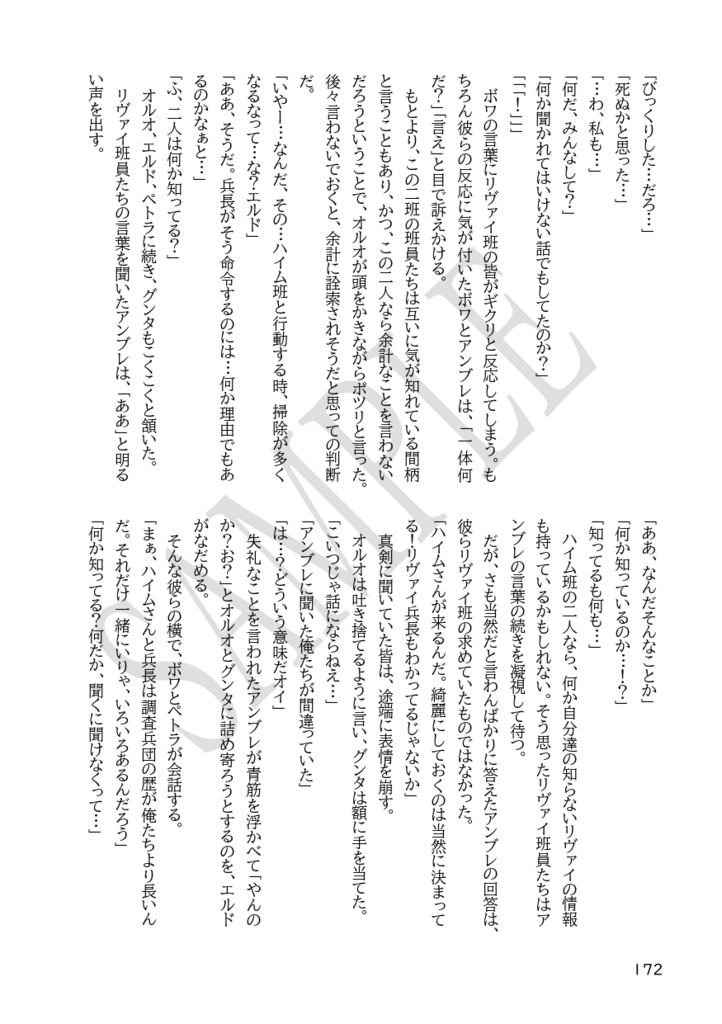 「びっくりした…だろ…」
「死ぬかと思った…」
「…わ、私も…」
「何だ、みんなして？」
「何か聞かれてはいけない話でもしてたのか？」
「「「！」」」
ボワの言葉にリヴァイ班の皆がギクリと反応してしまう。も
ちろん彼らの反応に気が付いたボワとアンブレは、「一体何
だ？」「言え」と目で訴えかける。
もとより、この二班の班員たちは互いに気が知れている間柄
と言うこともあり、かつ、この二人なら余計なことを言わない
だろうということで、オルオが頭をかきながらポツリと言った。
後々言わないでおくと、余計に詮索されそうだと思っての判断
だ。
「いやー…なんだ、その…ハイム班と行動する時、掃除が多く
なるなって…な？エルド」
「ああ、そうだ。兵長がそう命令するのには…何か理由でもあ
るのかなぁと…」
「ふ、二人は何か知ってる？」
オルオ、エルド、ペトラに続き、グンタもこくこくと頷いた。
リヴァイ班員たちの言葉を聞いたアンブレは、「ああ」と明る
い声を出す。
「ああ、なんだそんなことか」
「何か知っているのか…！？」
「知ってるも何も…」
ハイム班の二人なら、何か自分達の知らないリヴァイの情報
も持っているかもしれない。そう思ったリヴァイ班員たちはア
ンブレの言葉の続きを凝視して待つ。
だが、さも当然だと言わんばかりに答えたアンブレの回答は、
彼らリヴァイ班の求めていたものではなかった。
「ハイムさんが来るんだ。綺麗にしておくのは当然に決まって
る！リヴァイ兵長もわかってるじゃないか」
真剣に聞いていた皆は、途端に表情を崩す。
オルオは吐き捨てるように言い、グンタは額に手を当てた。
「こいつじゃ話にならねえ…」
「アンブレに聞いた俺たちが間違っていた」
「は…？どういう意味だオイ」
失礼なことを言われたアンブレが青筋を浮かべて「やんの
か？お？」とオルオとグンタに詰め寄ろうとするのを、エルド
がなだめる。
そんな彼らの横で、ボワとペトラが会話する。
「まぁ、ハイムさんと兵長は調査兵団の歴が俺たちより長いん
だ。それだけ一緒にいりゃ、いろいろあるんだろう」
「何か知ってる？何だか、聞くに聞けなくって…」
172
SAMPLE